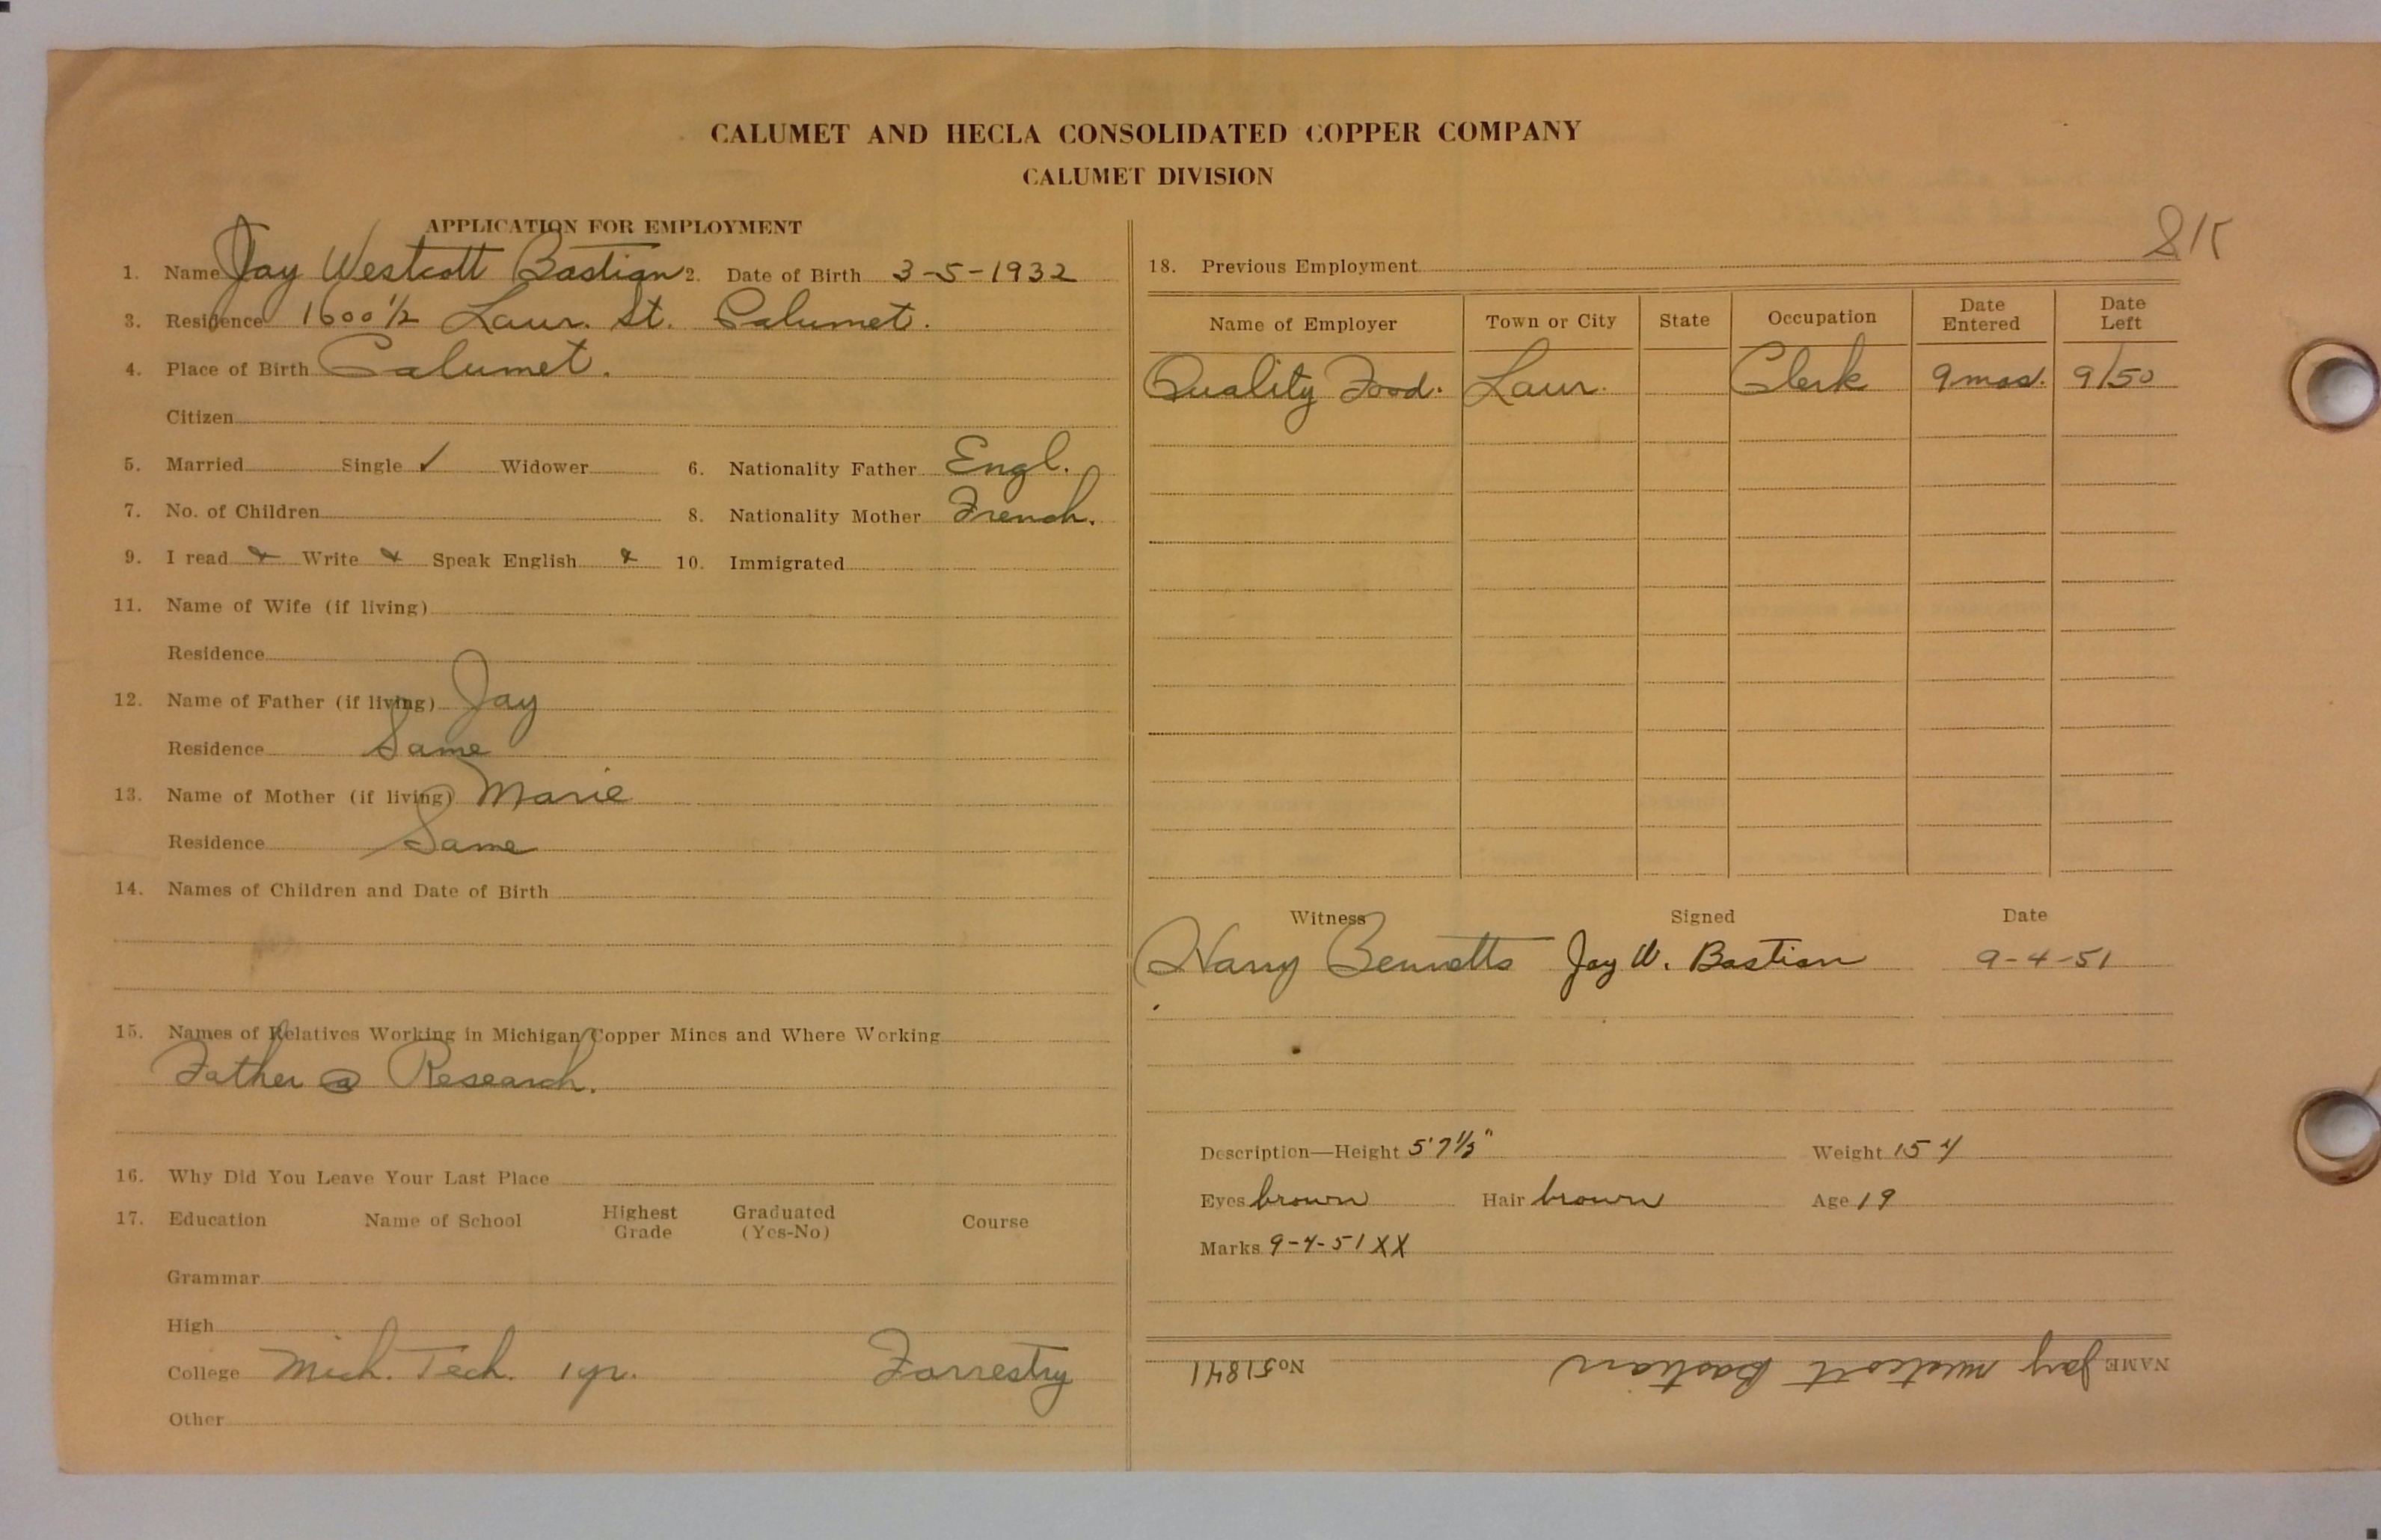 CALUMET AND HECLA CONSOLIDATED COPPER COMPANY
CALUMET DIVISION
APPLICATION FOR EMPLOYMENT
1. Name Jay Westcott Bastian 2. Date of Birth 3-5-1932
3. Residence 1600 1/2 Laur. St. Calumet.
4. Place of Birth Calumet.
Citizen
5. Married Single ✓ Widower 6. Nationality Father Engl.
7. No. of Children 8. Nationality Mother French.
9. I read x Write x Speak English x 10. Immigrated
11. Name of Wife (if living)
Residence
12. Name of Father (if living) Jay
Residence Same
13. Name of Mother (if living) Marie
Residence Same
14. Names of Children and Date of Birth
15. Names of Relatives Working in Michigan Copper Mines and Where Working
Father @ Research.
16. Why Did You Leave Your Last Place
17. Education Name of School Highest Grade Graduated (Yes-No) Course
Grammar
High
College Mich. Tech. 1 yr. Forrestry
Other
18. Previous Employment
Name of Employer Town or City State Occupation Date Entered Date Left
Quality Food. Laur. Clerk 9 mos. 9/50
Witness Signed Date
Harry Bennetts Jay W. Bastian 9-4-51
Description—Height 5'7 1/2" Weight 154
Eyes brown Hair brown Age 19
Marks 9-4-51 XX
NAME Jay Westcott Bastian No 51841